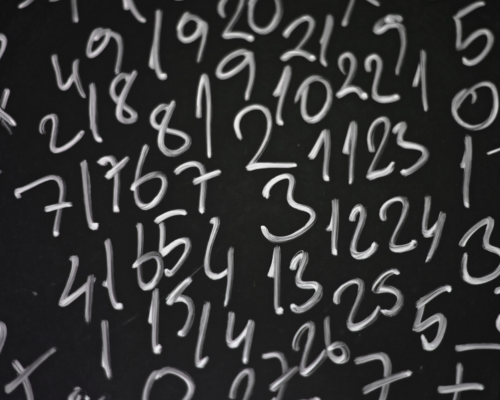 20
9 19 21 9 5
4 18 9 10 22 1 0
2 8 1 2 11 23 1
7 17 6 7 3 12 24 3
4 1 16 5 4 13 25 5
1 15 14 26 7 +
x 0 2 7